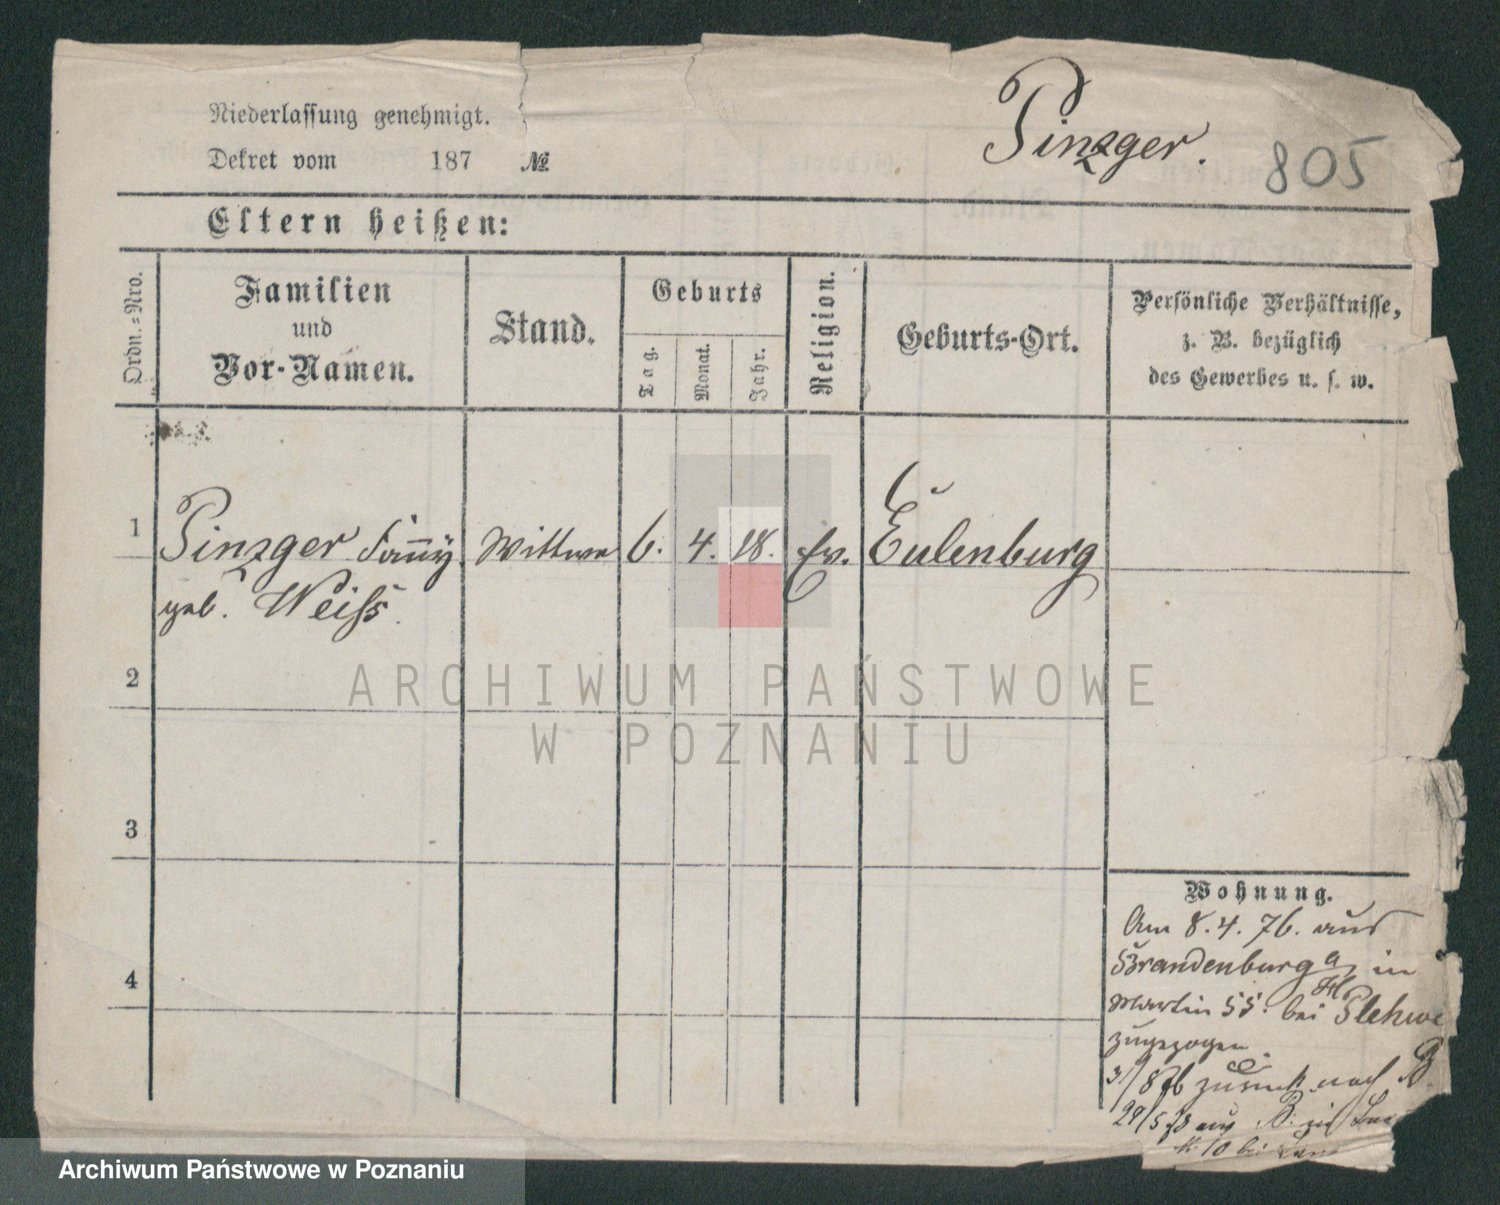 Niederlassung genehmigt.
Dekret vom 187 №
Pinzger.
805
Eltern heißen:
Ordn.-Nro.
Familien
und
Vor-Namen.
Stand.
Geburts
Tag.
Monat.
Jahr.
Religion.
Geburts-Ort.
Persönliche Verhältnisse,
z. B. bezüglich
des Gewerbes u. s. w.
1 Pinzger Fanny Wittwe 6. 4. 18. Ev. Eulenburg
geb. Weiss.
2
3
4
ARCHIWUM PAŃSTWOWE
W POZNANIU
Wohnung.
Am 8. 4. 76. aus
Brandenburg a/H in
Martin 55. bei Plehwe
zugezogen
3/8 76 zurück nach B
29/5 78 aus B. in
10 bei
Archiwum Państwowe w Poznaniu